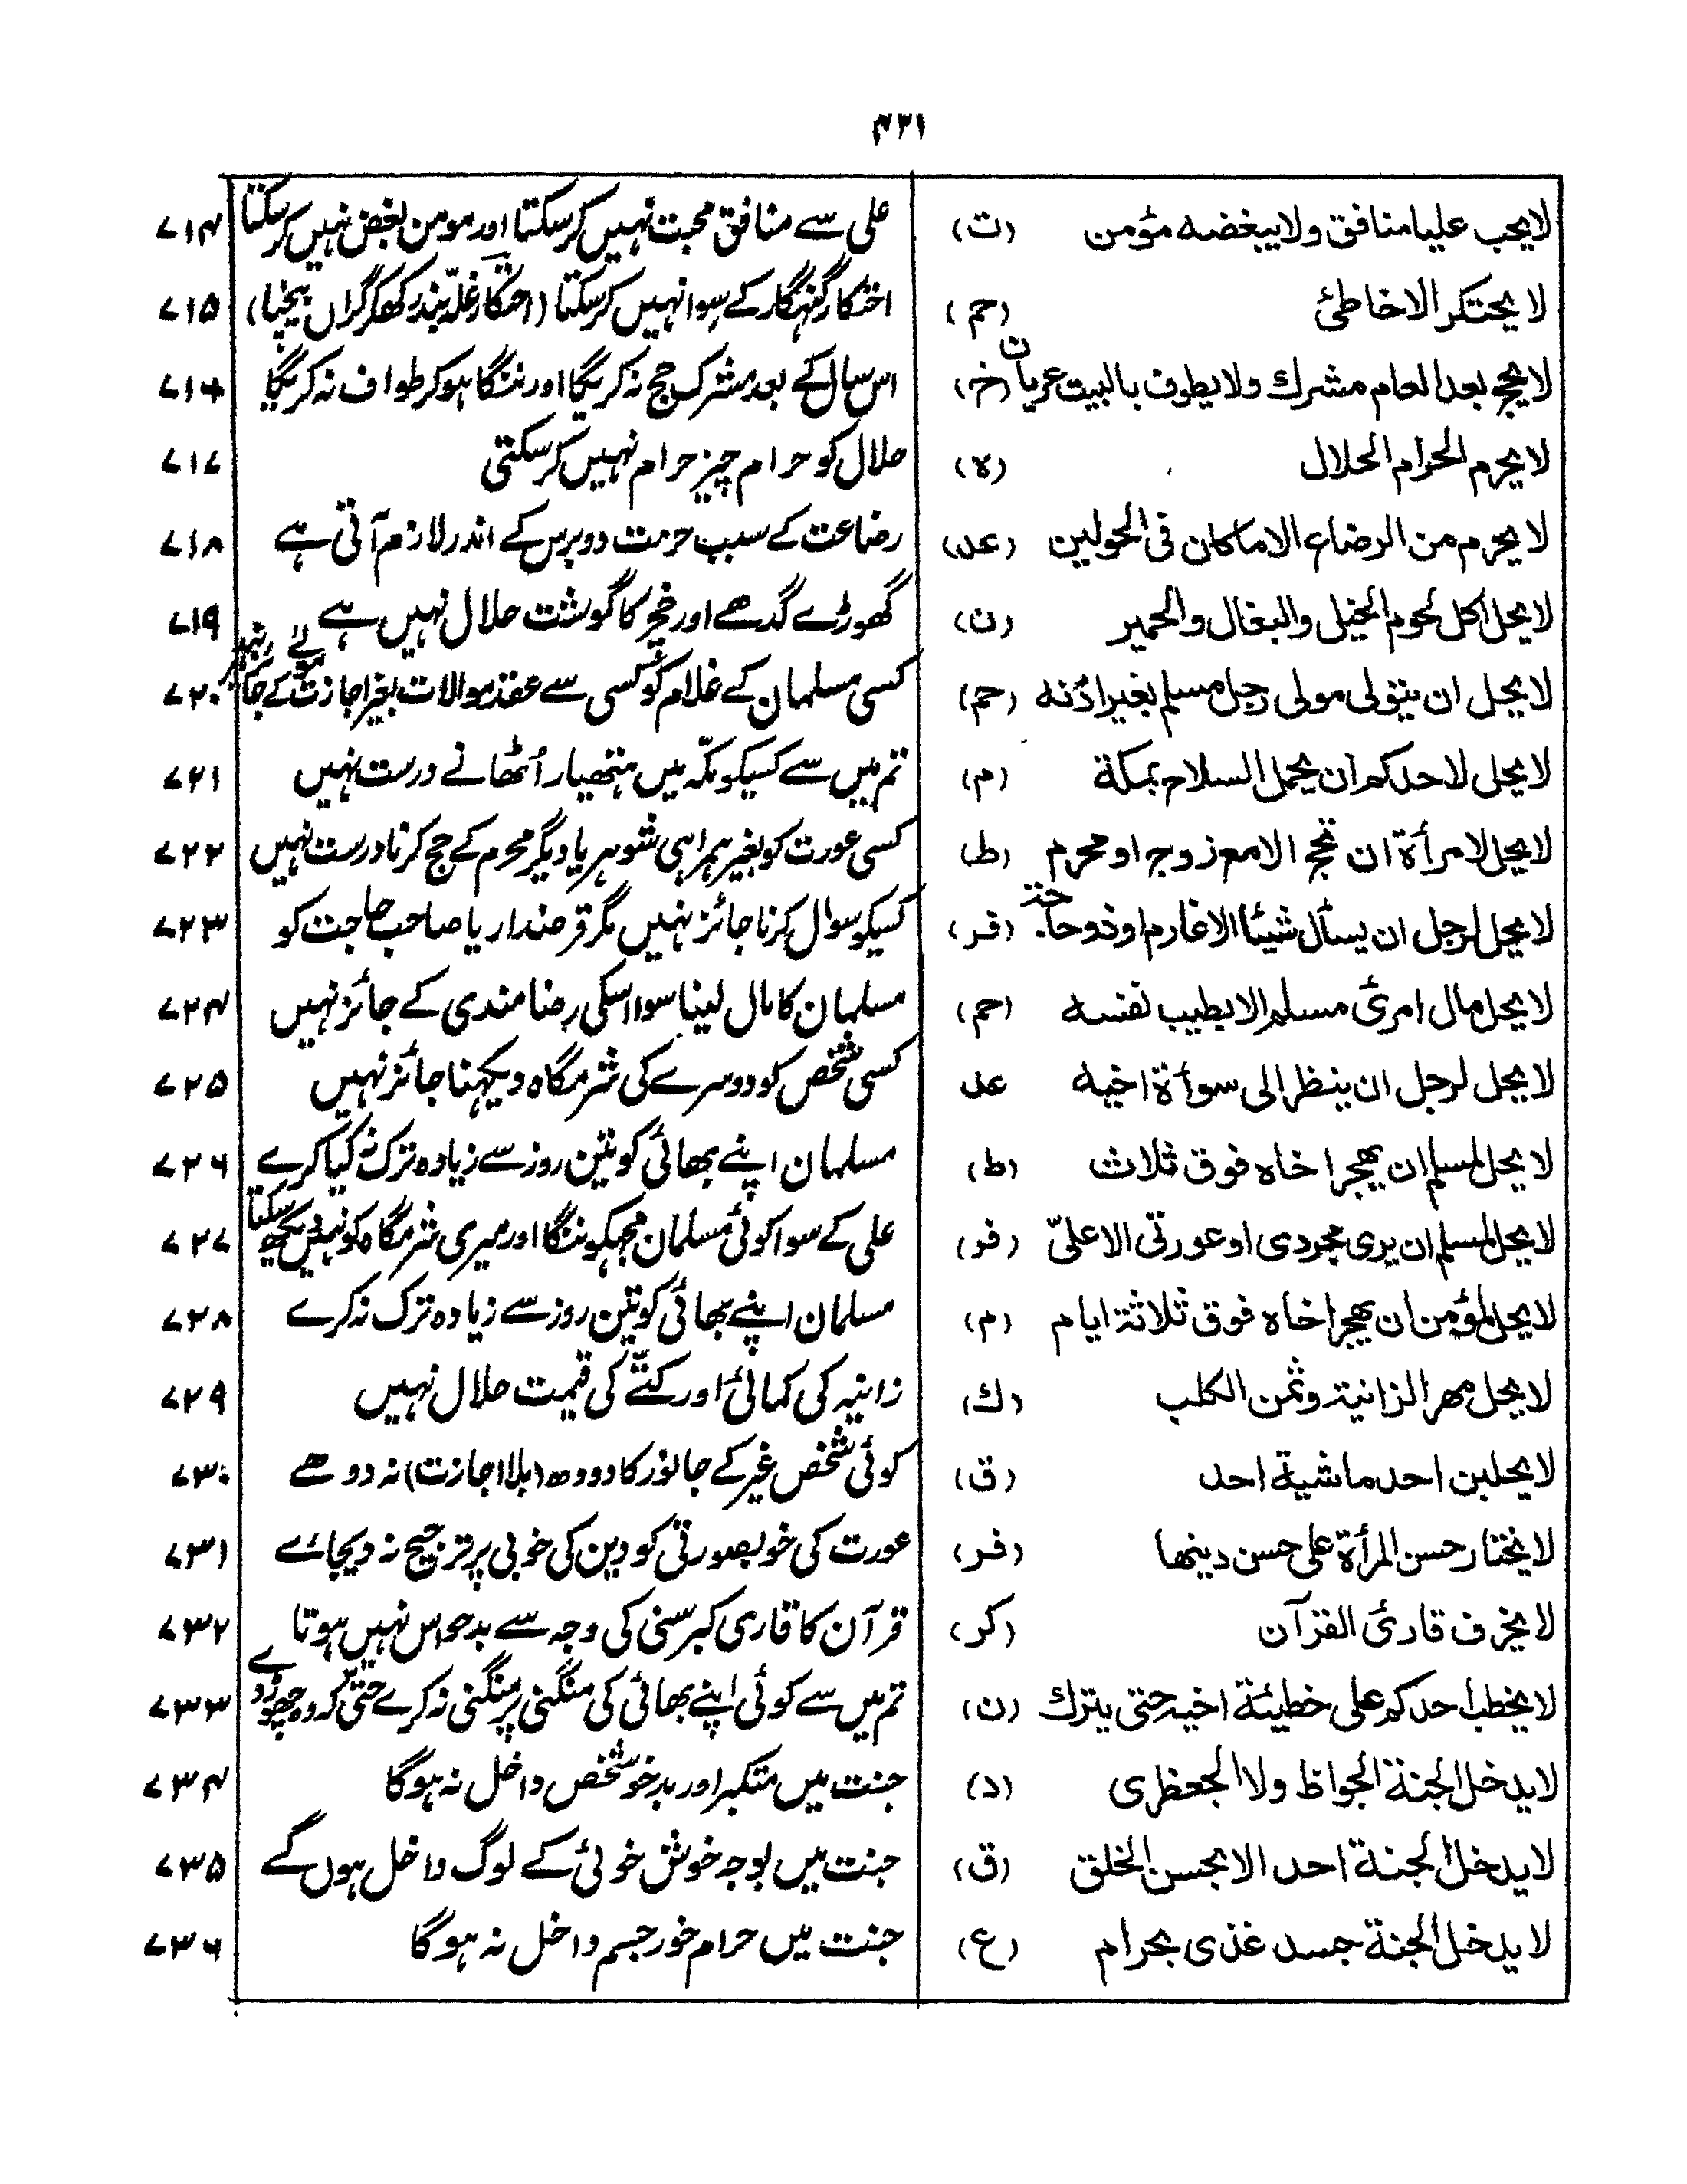 ۴۲۱
لا یحب علیا منافق ولا یبغضه مؤمن (ت) علی سے منافق محبت نہیں کرسکتا اور مومن بغض نہیں کرسکتا ۷۱۴
لا یحتکر الا خاطئ (حم) احتکار گنہگار کے سوا نہیں کرسکتا (احتکار غلّہ بند رکھکر گراں بیچنا) ۷۱۵
لا یحج بعد العام مشرك ولا یطوف بالبیت عریان (خ) اس سال کے بعد مشرک حج نہ کریگا اور ننگا ہوکر طواف نہ کریگا ۷۱۶
لا یحرم الحرام الحلال (ہ) حلال کو حرام چیز حرام نہیں کرسکتی ۷۱۷
لا یحرم من الرضاع الا ماکان فی الحولین (عد) رضاعت کے سبب حرمت دو برس کے اندر لازم آتی ہے ۷۱۸
لا یحل اکل لحوم الخیل والبغال والحمیر (ن) گھوڑے گدھے اور خچر کا گوشت حلال نہیں ہے ۷۱۹
لا یحل ان یتولی مولی رجل مسلم بغیر اذنه (حم) کسی مسلمان کے غلام کو کسی سے عقد موالات بغیر اجازت کے جائز نہیں ۷۲۰
لا یحل لاحدکم ان یحمل السلاح بمکة (م) تم میں سے کسیکو مکّہ میں ہتھیار اُٹھانے درست نہیں ۷۲۱
لا یحل لامرأة ان تحج الا مع زوج او محرم (ط) کسی عورت کو بغیر ہمراہی شوہر یا دیگر محرم کے حج کرنا درست نہیں ۷۲۲
لا یحل لرجل ان یسأل شیئا الا غارم او ذو حاجته (فر) کسیکو سوال کرنا جائز نہیں مگر قرضدار یا صاحب حاجت کو ۷۲۳
لا یحل مال امرئ مسلم الا بطیب نفسه (حم) مسلمان کا مال لینا سوا اسکی رضامندی کے جائز نہیں ۷۲۴
لا یحل لرجل ان ینظر الی سوأة اخیه عد کسی شخص کو دوسرے کی شرمگاہ دیکھنا جائز نہیں ۷۲۵
لا یحل لمسلم ان یهجر اخاه فوق ثلاث (ط) مسلمان اپنے بھائی کو تین روز سے زیادہ ترک نہ کیا کرے ۷۲۶
لا یحل لمسلم ان یری مجردی او عورتی الا علیّ (فر) علی کے سوا کوئی مسلمان مجہکو ننگا اور میری شرمگاہ کو نہیں دیکھ سکتا ۷۲۷
لا یحل لمؤمن ان یهجر اخاه فوق ثلاثة ایام (م) مسلمان اپنے بھائی کو تین روز سے زیادہ ترک نہ کرے ۷۲۸
لا یحل مهر الزانیة وثمن الکلب (ك) زانیہ کی کمائی اور کتّے کی قیمت حلال نہیں ۷۲۹
لا یحلبن احد ماشیة احد (ق) کوئی شخص غیر کے جانور کا دودھ (بلا اجازت) نہ دوھے ۷۳۰
لا یختار حسن المرأة علی حسن دینها (فر) عورت کی خوبصورتی کو دین کی خوبی پر ترجیح نہ دیجائے ۷۳۱
لا یخرف قارئ القرآن (کر) قرآن کا قاری کبرسنی کی وجہ سے بدحواس نہیں ہوتا ۷۳۲
لا یخطب احدکم علی خطیئة اخیه حتی یترك (ن) تم میں سے کوئی اپنے بھائی کی منگنی پر منگنی نہ کرے حتیٰ کہ وہ چھوڑدے ۷۳۳
لا یدخل الجنة الجواظ ولا الجعظری (د) جنت میں متکبر اور بدخو شخص داخل نہ ہوگا ۷۳۴
لا یدخل الجنة احد الا بحسن الخلق (ق) جنت میں بوجہ خوش خوئی کے لوگ داخل ہوں گے ۷۳۵
لا یدخل الجنة جسد غذی بحرام (ع) جنت میں حرام خور جسم داخل نہ ہوگا ۷۳۶